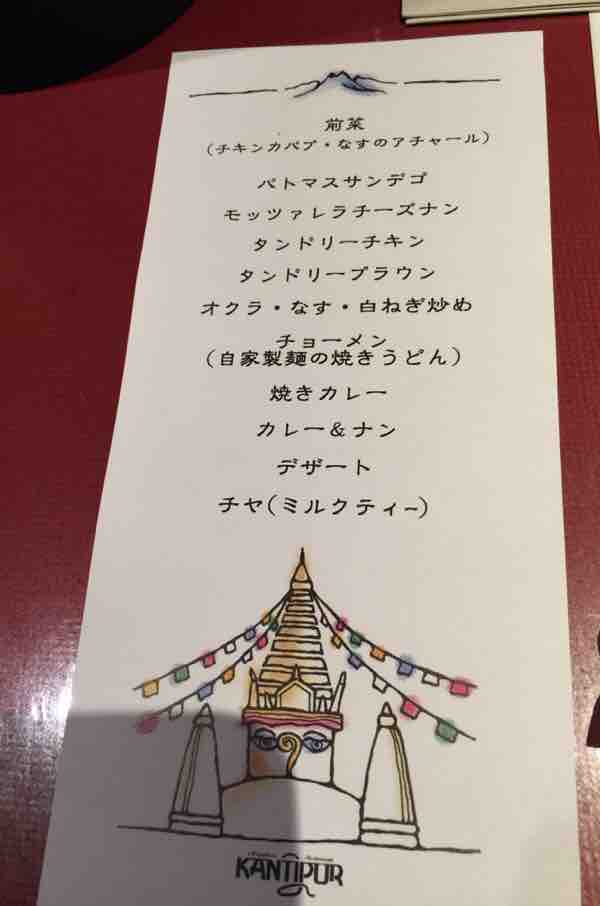 前菜
(チキンカバブ・なすのアチャール)
バトマスサンデゴ
モッツァレラチーズナン
タンドリーチキン
タンドリーブラウン
オクラ・なす・白ねぎ炒め
チョーメン
(自家製麺の焼きうどん)
焼きカレー
カレー&ナン
デザート
チヤ(ミルクティー)
KANTIPUR